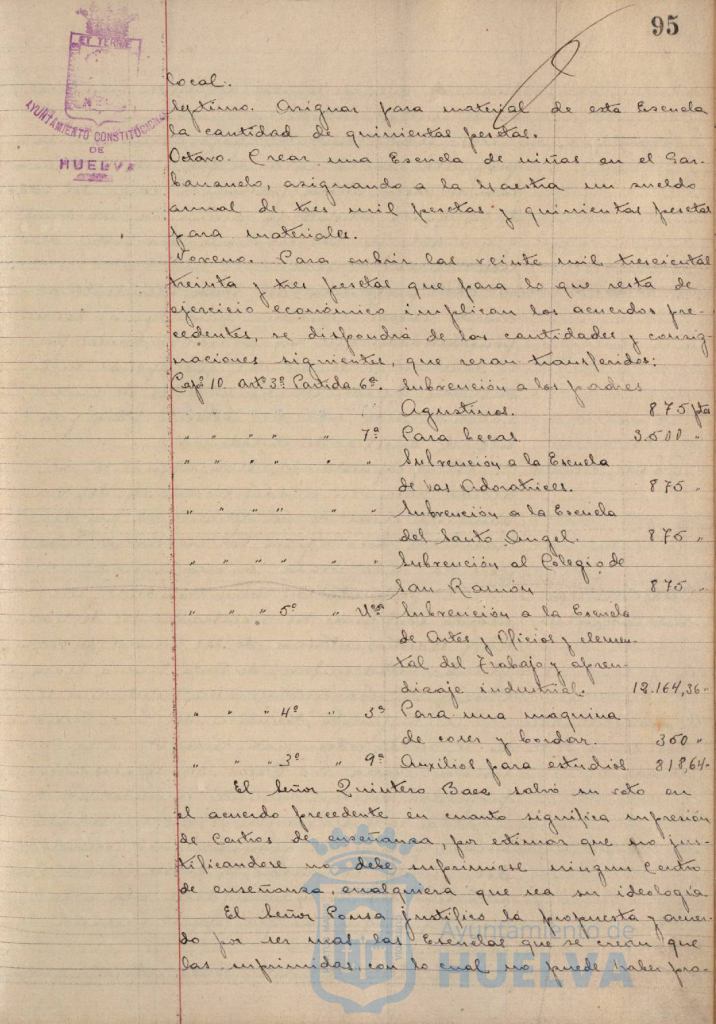 95
ET TERRE
AYUNTAMIENTO CONSTITUCIONAL
DE
HUELVA
local.
Septimo. Asignar para material de esta Escuela
la cantidad de quinientas pesetas.
Octavo. Crear una Escuela de niñas en el Gar-
banuelo, asignando a la Maestra un sueldo
annal de tres mil pesetas y quinientas pesetas
para materiales.
Noveno. Para cubrir las veinte mil trescientas
treinta y tres pesetas que para lo que resta de
ejercicio económico implican los acuerdos pre-
cedentes, se dispondrá de las cantidades y consig-
naciones siguientes, que seran transferidos:
Capº 10. Artº 3º Partida 6ª. Subvención a los padres
Agustinos. 875 ptas
" " " " " 7ª Para becas 3.500 "
" " " " " " Subvención a la Escuela
de las Adoratrices. 875 "
" " " " " " Subvención a la Escuela
del Santo Angel. 875 "
" " " " " " Subvención al Colegio de
San Ramón 875 "
" " " 5º " Subvención a la Escuela
de Artes y Oficios y elemen-
tal del Trabajo y apren-
dizaje industrial. 12.164,36 "
" " " 4º " 3ª Para una maquina
de coser y bordar. 350 "
" " " 3º " 9ª Auxilios para estudios 818,64 "
El Señor Quintero Baez salvó su voto en
el acuerdo precedente en cuanto significa supresión
de Centros de enseñanza, por estimar que no jus-
tificandose no debe suprimirse ningun Centro
de enseñanza, cualquiera que sea su ideología
El Señor Ponsa justificó la propuesta y acuer-
do por ser mas las Escuelas que se crean que
las suprimidas, con lo cual no puede haber pro-
Ayuntamiento de
HUELVA